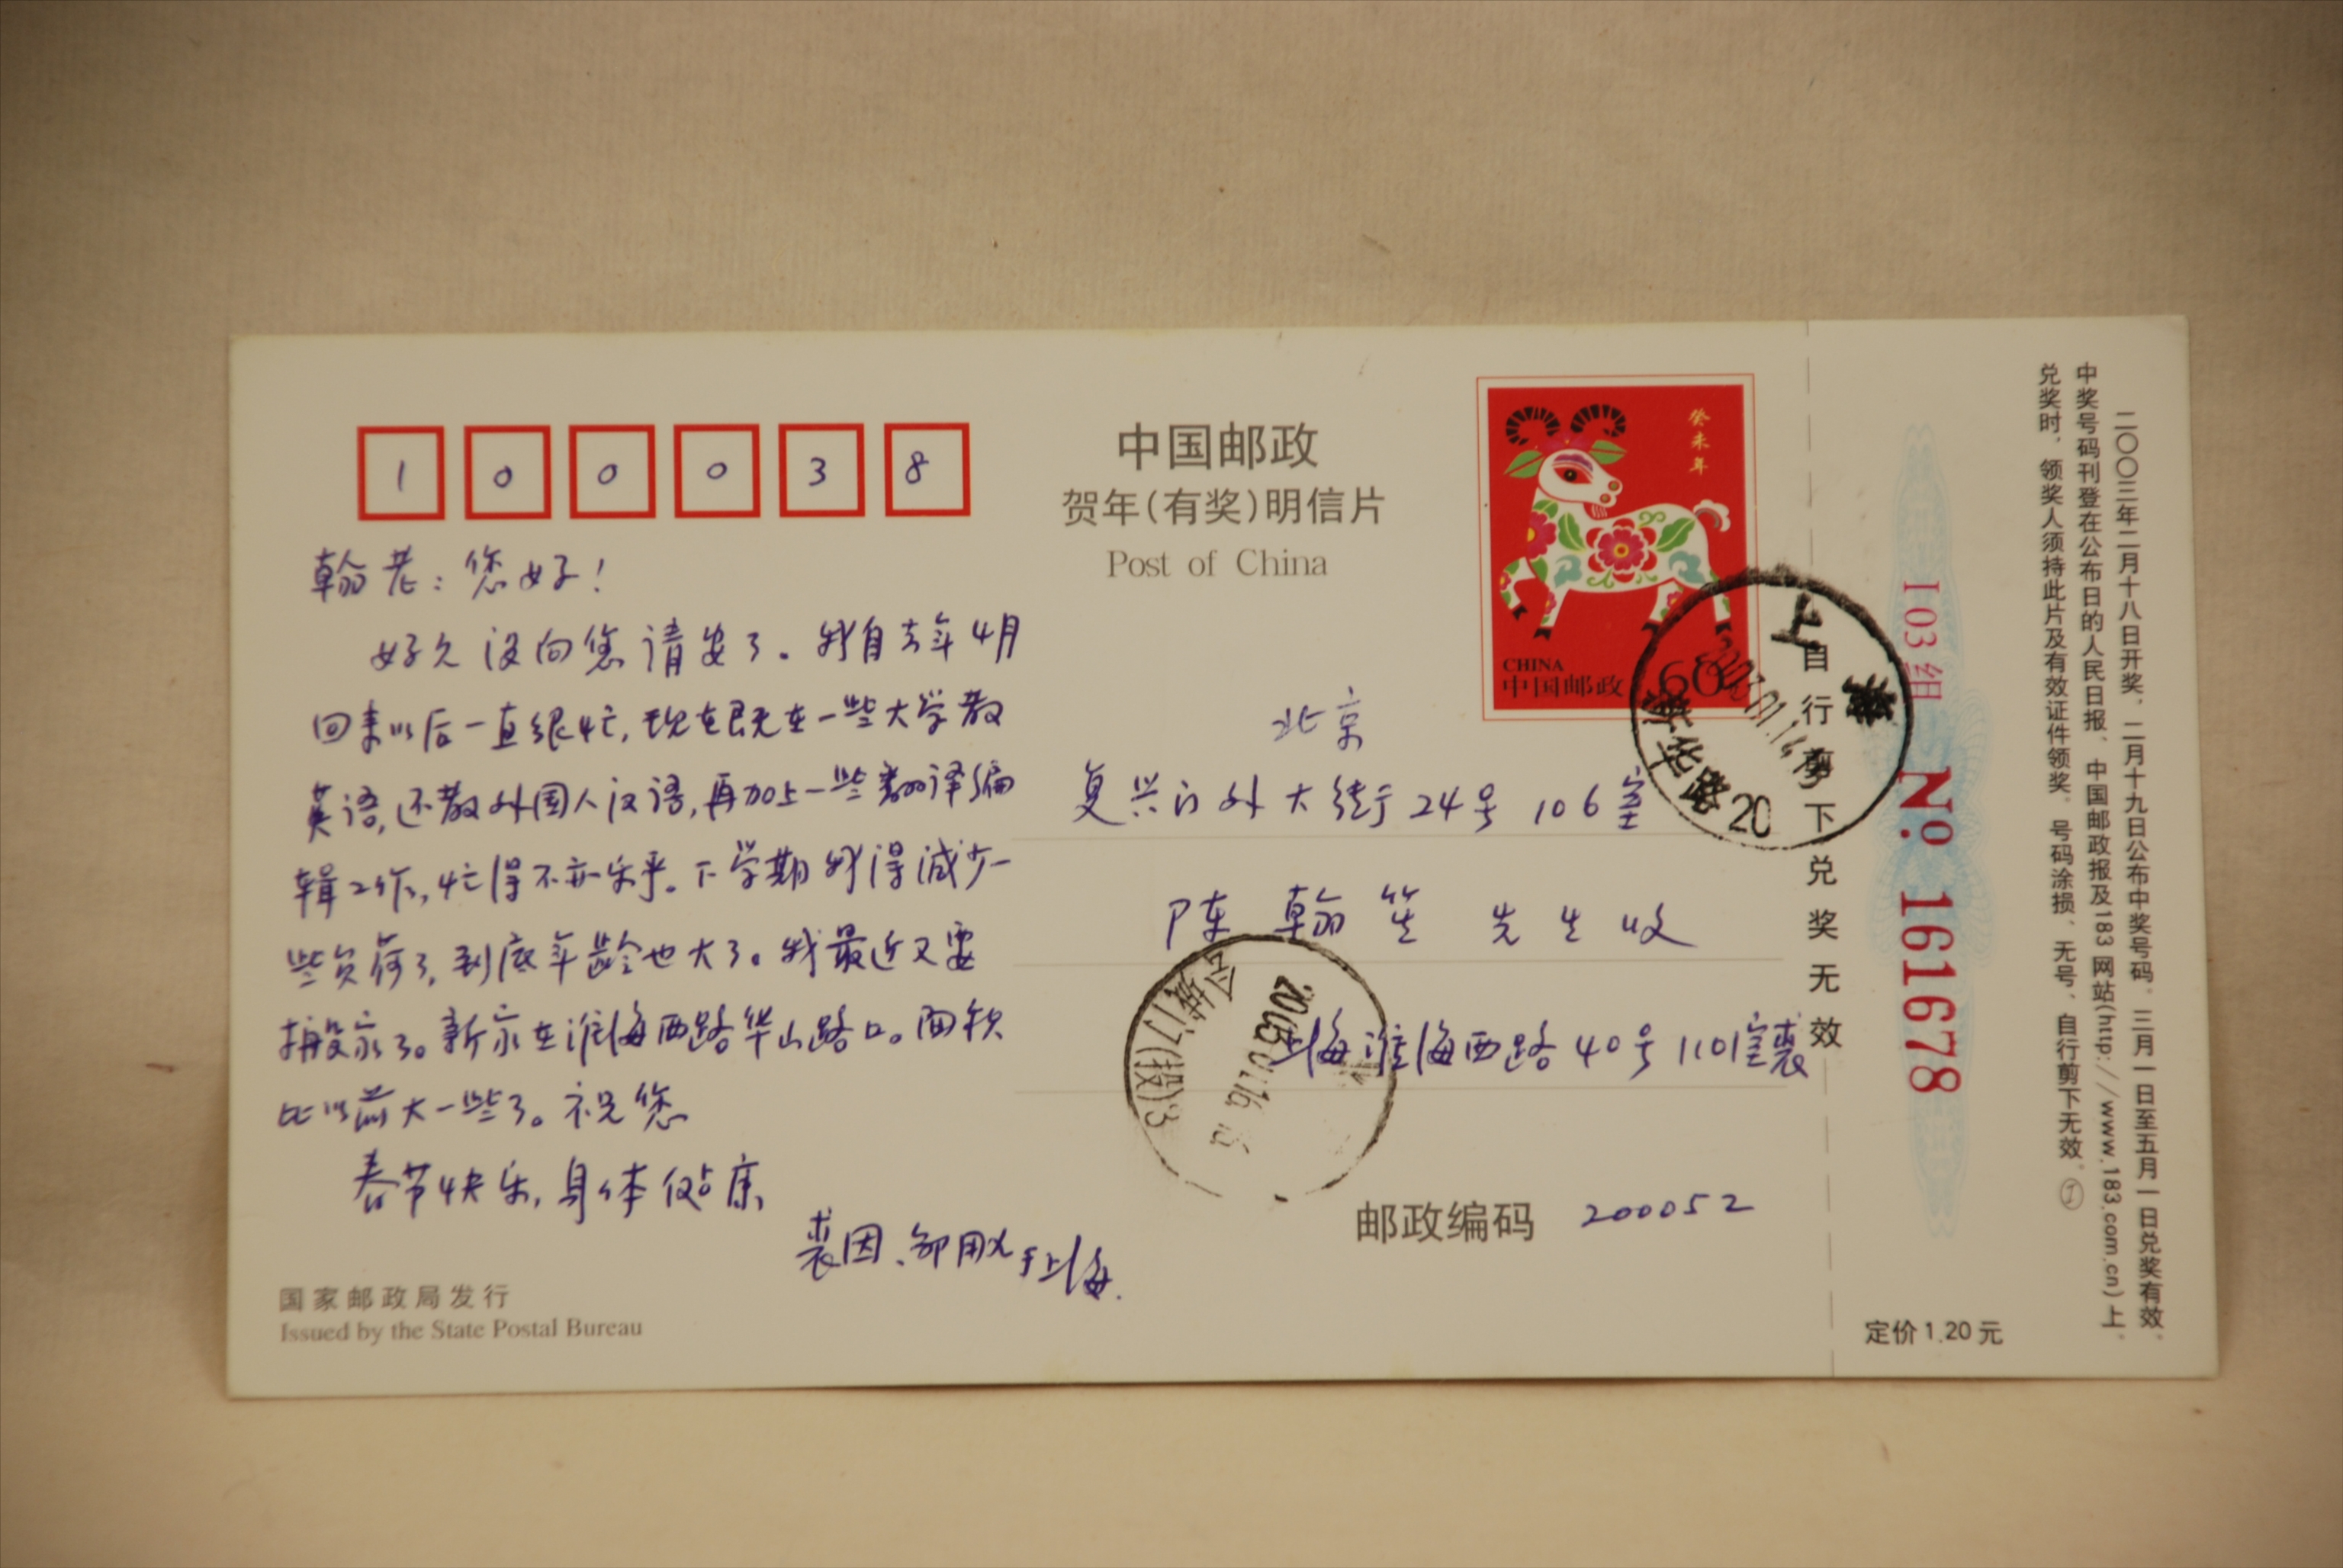 100038
翰老：您好！
好久没向您请安了。我自去年4月
回来以后一直很忙，现在既在一些大学教
英语，还教外国人汉语，再加上一些翻译编
辑工作，忙得不亦乐乎。下学期我得减少一
些负荷了，到底年龄也大了。我最近又要
搬家了。新家在淮海西路华山路口。面积
比以前大一些了。祝您
春节快乐，身体健康
裘因、邹用九于上海.
国家邮政局发行
Issued by the State Postal Bureau
中国邮政
贺年(有奖)明信片
Post of China
癸未年
CHINA
中国邮政 60
北京
复兴门外大街于24号 106室
陈翰笙 先生收
上海淮海西路40号1101室裘
邮政编码 200052
上海
新华路
20
2003.01.16
会城门(投)3
自行剪下兑奖无效
103组 No. 161678
定价 1.20 元
二〇〇三年二月十八日开奖，二月十九日公布中奖号码。三月一日至五月一日兑奖有效。
中奖号码刊登在公布日的人民日报、中国邮政报及183网站(http://www.183.com.cn)上。
兑奖时，领奖人须持此片及有效证件领奖。号码涂损、无号、自行剪下无效。